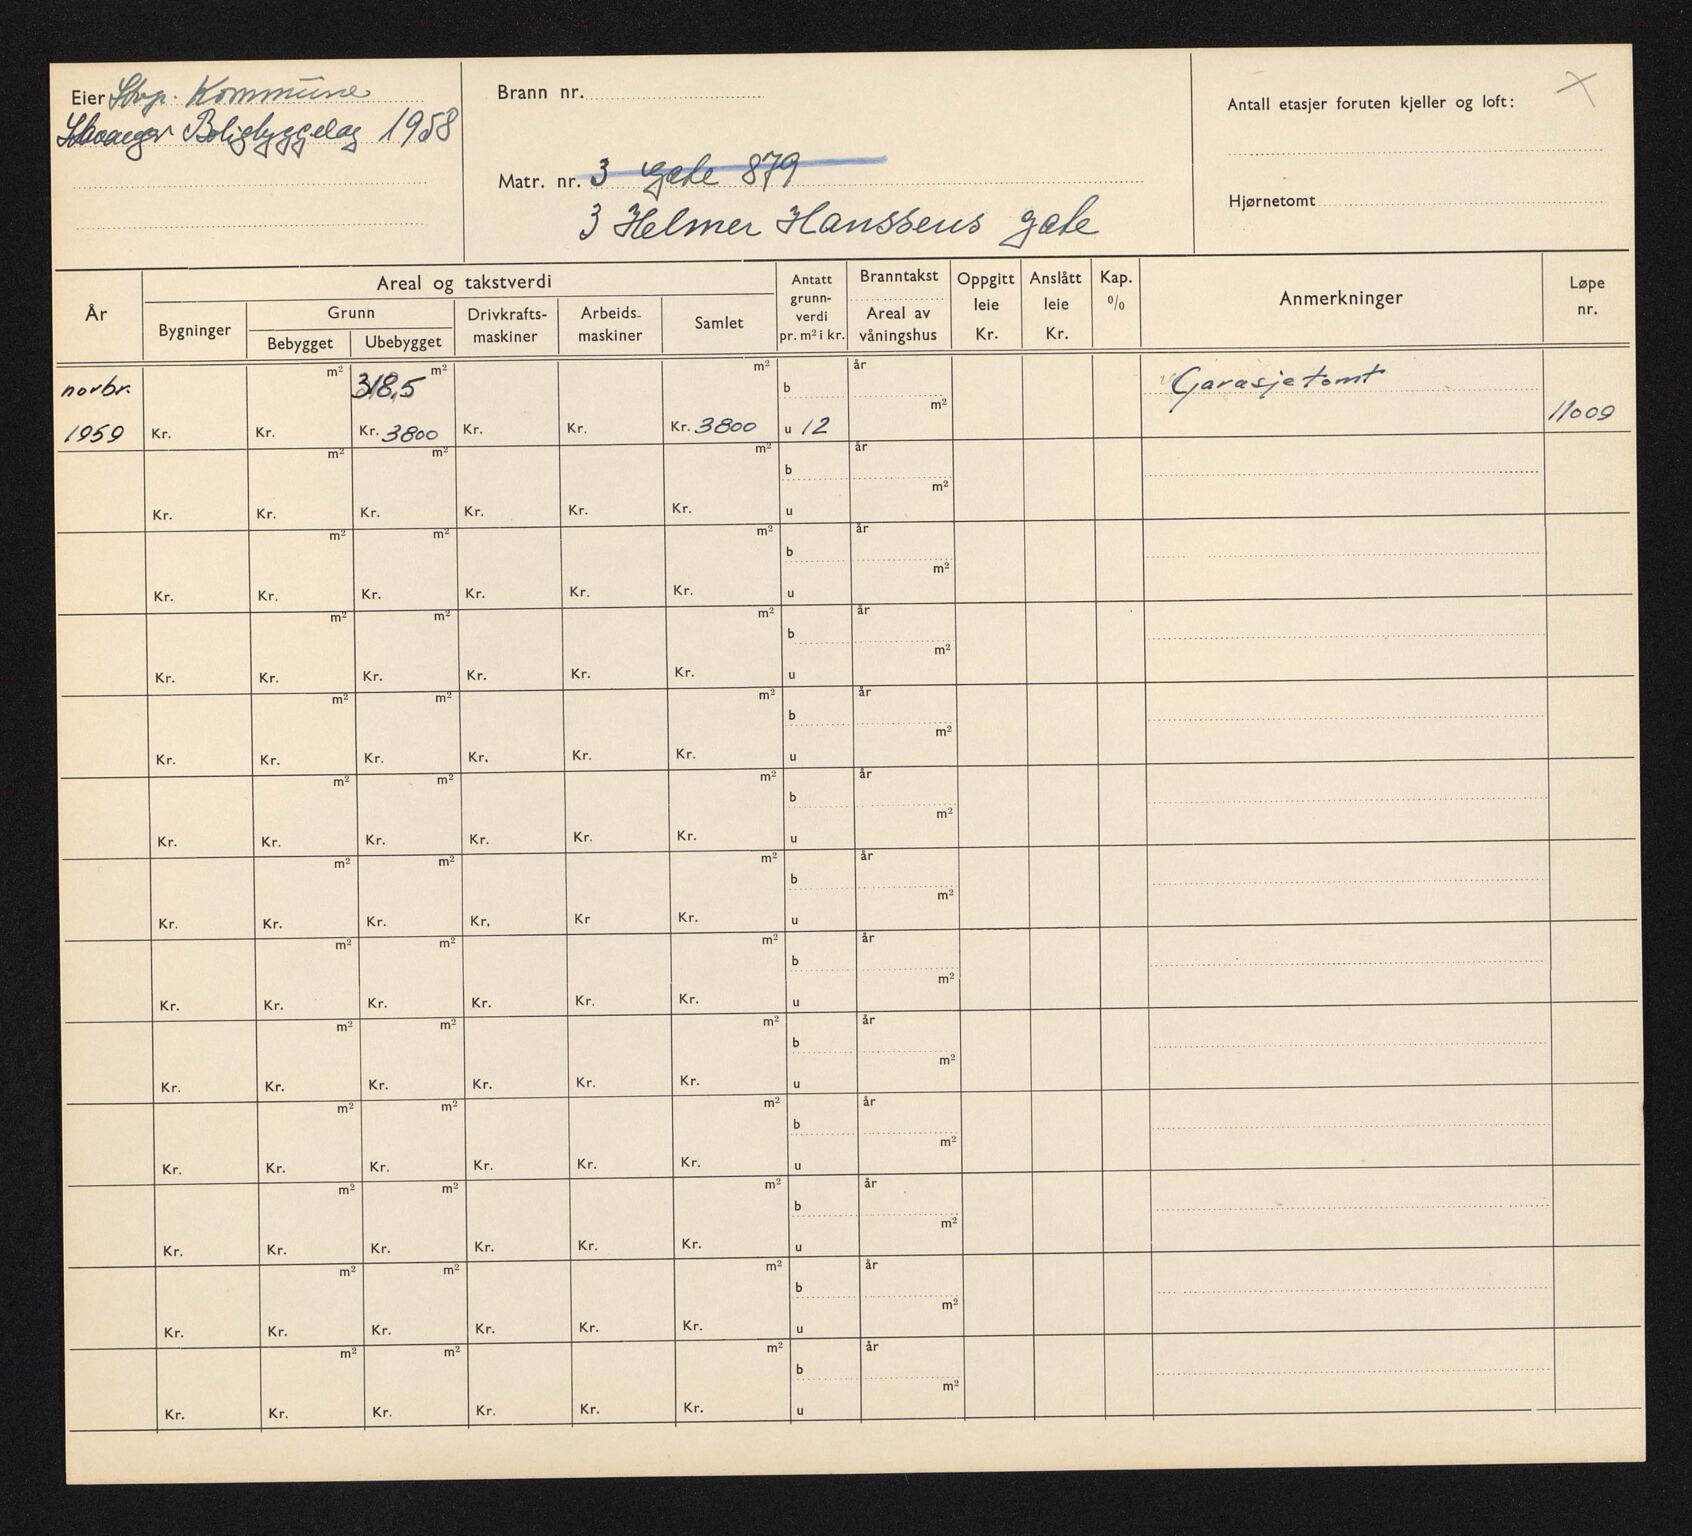 Eier Stvgr. Kommune
Stavanger Boligbyggelag 1958
Brann nr.
Matr. nr. 3 Gate 879
3 Helmer Hanssens gate
Antall etasjer foruten kjeller og loft:
Hjørnetomt
År
Areal og takstverdi
Bygninger
Grunn
Bebygget Ubebygget
Drivkrafts-
maskiner
Arbeids-
maskiner
Samlet
Antatt
grunn-
verdi
pr. m² i kr.
Branntakst
Areal av
våningshus
Oppgitt
leie
Kr.
Anslått
leie
Kr.
Kap.
%
Anmerkninger
Løpe
nr.
norbr. m² 318,5 m² m² b år m² Garasjetomt
1959 Kr. Kr. Kr. 3800 Kr. Kr. Kr. 3800 u 12 11009
m² m² m² b år m²
Kr. Kr. Kr. Kr. Kr. Kr. u
m² m² m² b år m²
Kr. Kr. Kr. Kr. Kr. Kr. u
m² m² m² b år m²
Kr. Kr. Kr. Kr. Kr. Kr. u
m² m² m² b år m²
Kr. Kr. Kr. Kr. Kr. Kr. u
m² m² m² b år m²
Kr. Kr. Kr. Kr. Kr. Kr. u
m² m² m² b år m²
Kr. Kr. Kr. Kr. Kr Kr. u
m² m² m² b år m²
Kr. Kr. Kr. Kr. Kr. Kr. u
m² m² m² b år m²
Kr. Kr. Kr. Kr. Kr. Kr. u
m² m² m² b år m²
Kr. Kr. Kr. Kr. Kr. Kr. u
m² m² m² b år m²
Kr. Kr. Kr. Kr. Kr. Kr. u
m² m² m² b år m²
Kr. Kr. Kr. Kr. Kr. Kr. u
m² m² m² b år m²
Kr. Kr. Kr. Kr. Kr. Kr. u